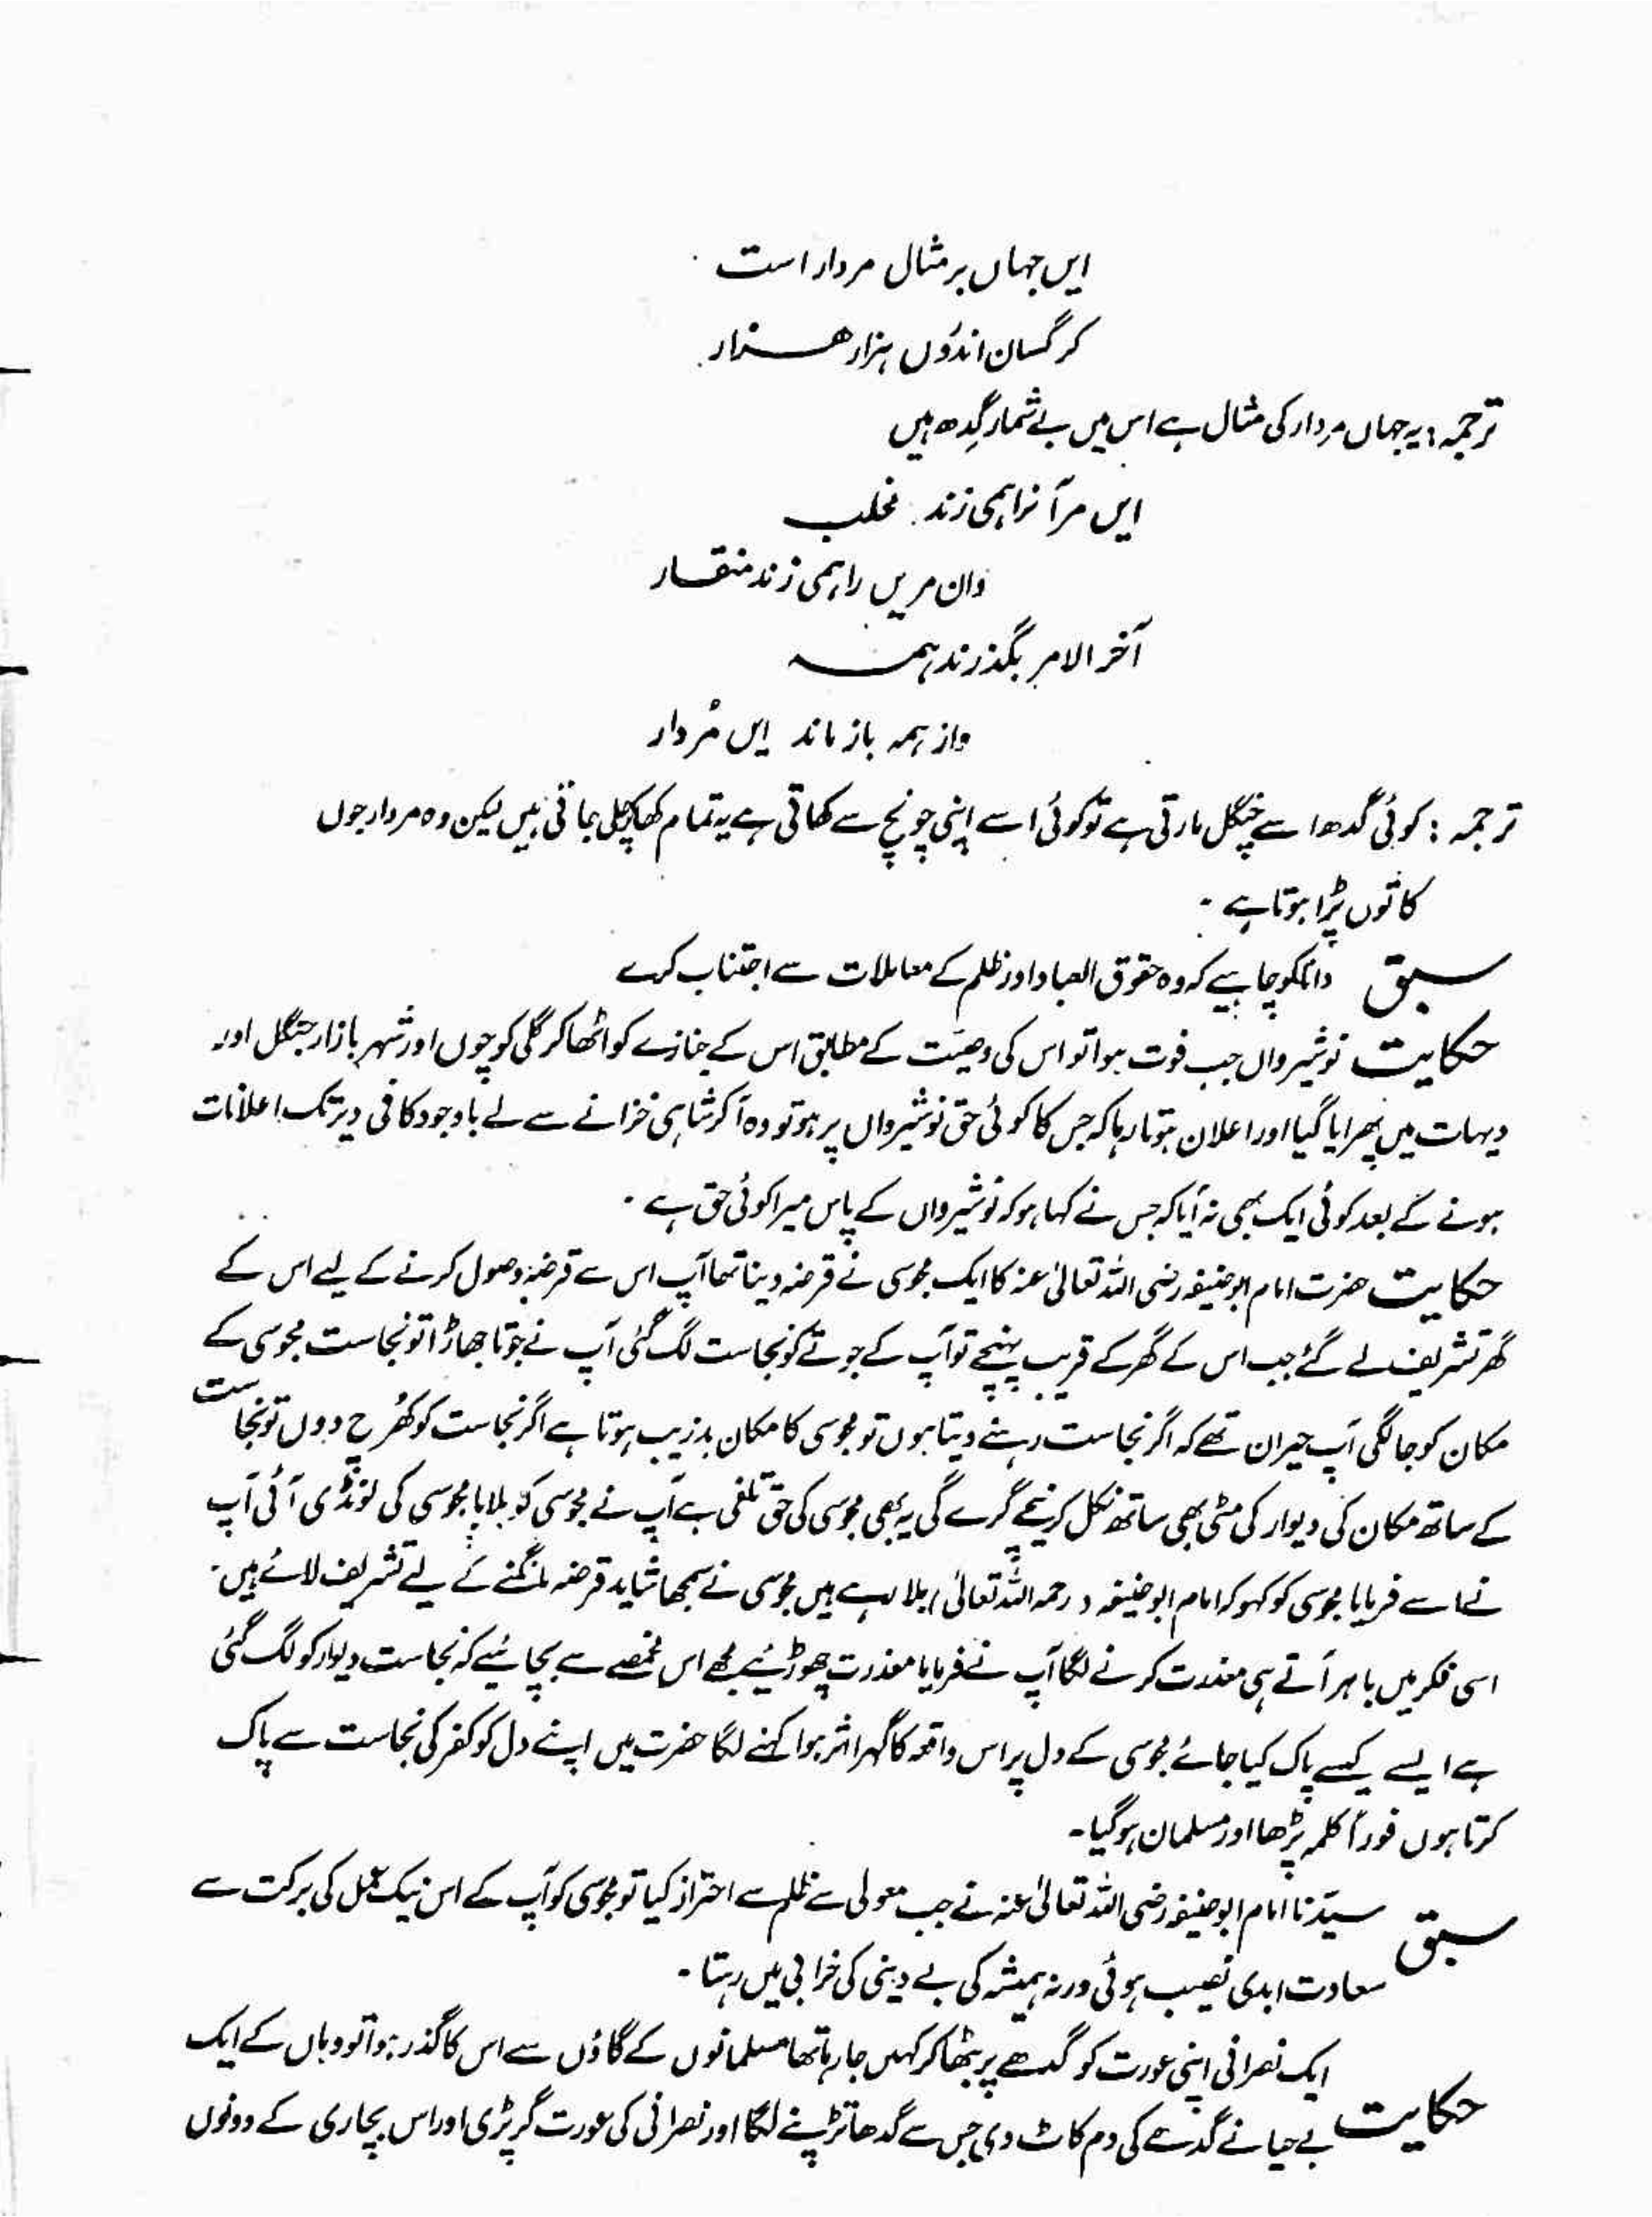 ایں جہاں بر مثال مردار است
کرگسان اندروں ہزار ھزار
ترجمہ: یہ جہاں مردار کی مثال ہے اس میں بے شمار گِدھ ہیں
ایں مر آنرا ہمی زند مخلب
وان مریں را ہمی زند منقار
آخر الامر بگذرند ہمہ
واز ہمہ باز ماند ایں مُردار
ترجمہ: کوئی گدھ اسے چنگل مارتی ہے تو کوئی اسے اپنی چونچ سے کھاتی ہے یہ تمام کھا کر چلی جاتی ہیں لیکن وہ مردار جوں
کا توں پڑا ہوتا ہے۔
سبق دانا کو چاہیے کہ وہ حقوق العباد اور ظلم کے معاملات سے اجتناب کرے
حکایت نوشیرواں جب فوت ہوا تو اس کی وصیّت کے مطابق اس کے جنازے کو اٹھا کر گلی کوچوں اور شہر بازار جنگل اور
دیہات میں پھرایا گیا اور اعلان ہوتا رہا کہ جس کا کوئی حق نوشیرواں پر ہو تو وہ آکر شاہی خزانے سے لے باوجود کافی دیر تک اعلانات
ہونے کے بعد کوئی ایک بھی نہ آیا کہ جس نے کہا ہو کہ نوشیرواں کے پاس میرا کوئی حق ہے۔
حکایت حضرت امام ابوحنیفہ رضی اللہ تعالیٰ عنہ کا ایک مجوسی نے قرضہ دینا تھا آپ اس سے قرضہ وصول کرنے کے لیے اس کے
گھر تشریف لے گئے جب اس کے گھر کے قریب پہنچے تو آپ کے جوتے کو نجاست لگ گئی آپ نے جوتا جھاڑا تو نجاست مجوسی کے
مکان کو جا لگی آپ حیران تھے کہ اگر نجاست رہنے دیتا ہوں تو مجوسی کا مکان بدزیب ہوتا ہے اگر نجاست کو کھُرچ دوں تو نجاست
کے ساتھ مکان کی دیوار کی مٹی بھی ساتھ نکل کر نیچے گرے گی یہ بھی مجوسی کی حق تلفی ہے آپ نے مجوسی کو بلایا مجوسی کی لونڈی آئی آپ
نے اسے فرمایا مجوسی کو کہو کہ امام ابوحنیفہ (رحمہ اللہ تعالیٰ) بلا رہے ہیں مجوسی نے سمجھا شاید قرضہ مانگنے کے لیے تشریف لائے ہیں۔
اسی فکر میں باہر آتے ہی معذرت کرنے لگا آپ نے فرمایا معذرت چھوڑیئے مجھے اس مخمصے سے بچائیے کہ نجاست دیوار کو لگ گئی
ہے ایسے کیسے پاک کیا جائے مجوسی کے دل پر اس واقعہ کا گہرا اثر ہوا کہنے لگا حضرت میں اپنے دل کو کفر کی نجاست سے پاک
کرتا ہوں فوراً کلمہ پڑھا اور مسلمان ہوگیا۔
سبق سیّدنا امام ابوحنیفہ رضی اللہ تعالیٰ عنہ نے جب معمولی سے ظلم سے احتراز کیا تو مجوسی کو آپ کے اس نیک عمل کی برکت سے
سعادت ابدی نصیب ہوئی ورنہ ہمیشہ کی بے دینی کی خرابی میں رہتا۔
حکایت ایک نصرانی اپنی عورت کو گدھے پر بٹھا کر کہیں جا رہا تھا مسلمانوں کے گاؤں سے اس کا گذر ہوا تو وہاں کے ایک
بے حیا نے گدھے کی دم کاٹ دی جس سے گدھا تڑپنے لگا اور نصرانی کی عورت گر پڑی اور اس بچاری کے دونوں